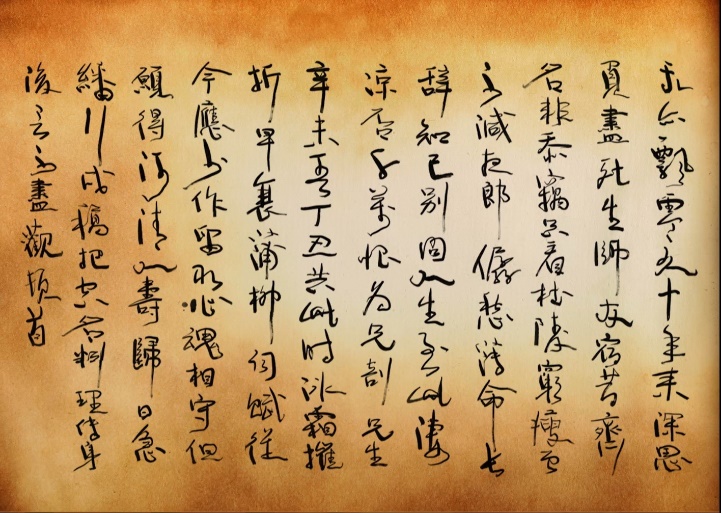 我亦飄零久十年来深恩
負盡死生師友宿昔齊
名非忝竊只看杜陵窮瘦曾
不減夜郎僝愁薄命長
辞知己别問人生到此凄
凉否千萬恨為兄剖兄生
辛未吾丁丑共此時冰霜摧
折早衰蒲柳詞賦從
今應少作留取心魂相守但
願得河清人壽歸日急
繙行戍稿把空名料理傳身
後言不盡觀頓首